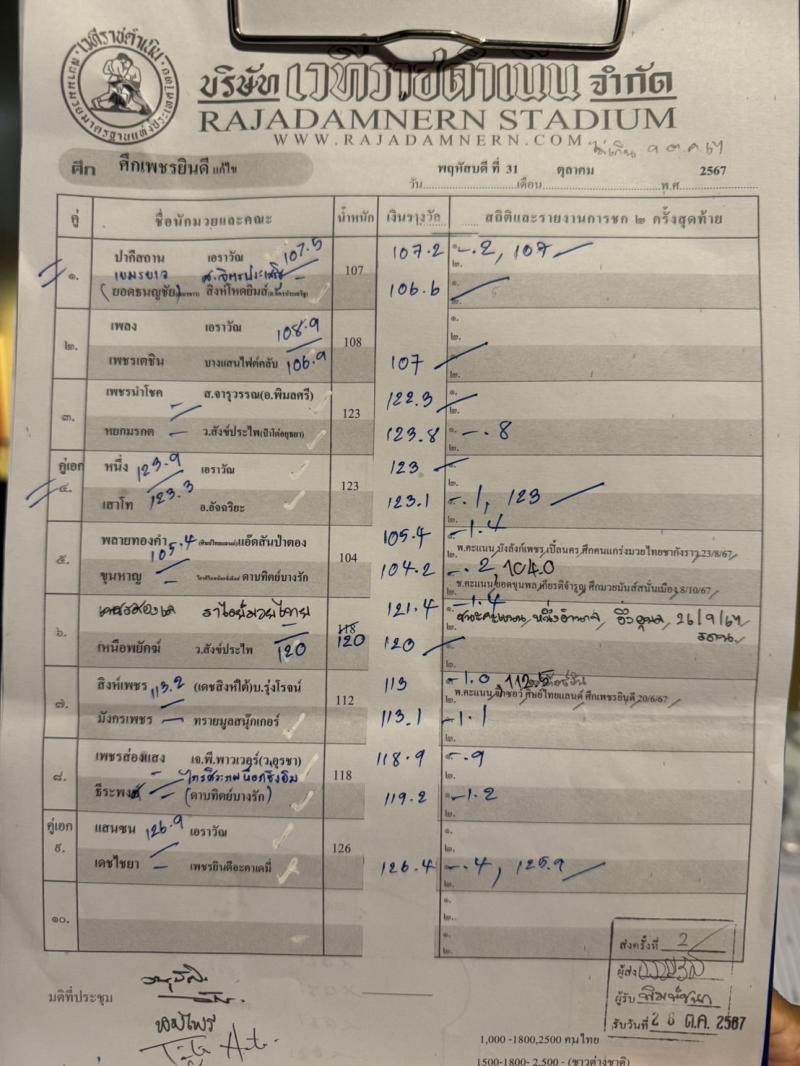 เวทีราชดำเนิน
บริษัท เวทีราชดำเนิน จำกัด
RAJADAMNERN STADIUM
WWW.RAJADAMNERN.COM
ศึก ศึกเพชรยินดี แก้ไข
พฤหัสบดี ที่ 31 ตุลาคม 2567
วัน เดือน พ.ศ
คู่ ชื่อนักมวยและคณะ น้ำหนัก เงินรางวัล สถิติและรายงานการชก ๒ ครั้งสุดท้าย
๑. ปากีสถาน เอราวัณ 107.5 107 107.2 ๑. -.2, 107 ๒.
(ยอดธนญชัย สิงห์โหดยิมส์ 106.6 ๑. ๒.
๒. เพลง เอราวัณ 108.9 108 ๑. ๒.
เพชรเตชิน บางแสนไฟต์คลับ 106.9 107 ๑. ๒.
๓. เพชรนำโชค ส.จารุวรรณ(อ.พิมลศรี) 123 122.3 ๑. ๒.
หยกมรกต ว.สังข์ประไพ 123.8 ๑. -.8 ๒.
คู่เอก ๔. หนึ่ง 123.9 เอราวัณ 123 123 ๑. ๒.
เสาโท 123.3 อ.อัจฉริยะ 123.1 -.1, 123 ๒.
๕. พลายทองคำ 105.4 แอ๊ดสันป่าตอง 104 105.4 -1.4
๒. พ.คะแนน บังลังก์เพชร เปี้ยนคร ศึกคนแกร่งมวยไทยชากังราว 23/8/67
ขุนหาญ ดาบทิตย์บางรัก 104.2 -.2, 104.0
ช.คะแนน ยอดขุนพล เกียรติจำรูญ ศึกมวยมันส์สนั่นเมือง 8/10/67
๖. 121.4 -1.4
26/9/67
เหนือพยัคฆ์ ว.สังข์ประไพ 120 118 120 120 ๑. ๒.
๗. สิงห์เพชร 113.2 (เดชสิงห์ใต้)บ.รุ่งโรจน์ 112 113 -1.0 112.5
พ.คะแนน ศิษย์ไทยแลนด์ ศึกเพชรยินดี 20/6/67
มังกรเพชร ทรายมูลสนุ๊กเกอร์ 113.1 -1.1 ๒.
๘. เพชรส่องแสง เจ.พี.พาวเวอร์(ว.อุรชา) 118 118.9 -.9 ๒.
ธีระพงศ์ (ดาบทิตย์บางรัก) 119.2 -1.2 ๒.
คู่เอก ๙. แสนซน 126.9 เอราวัณ 126 ๑. ๒.
เดชไชยา เพชรยินดีอะคาเดมี่ 126.4 -.4, 125.9 ๒.
๑๐. ๑. ๒.
๑. ๒.
มติที่ประชุม
ส่งครั้งที่ 2
ผู้ส่ง
ผู้รับ
รับวันที่ 28 ต.ค. 2567
1,000 -1800,2500 คนไทย
1500-1800- 2,500 - (ชาวต่างชาติ)